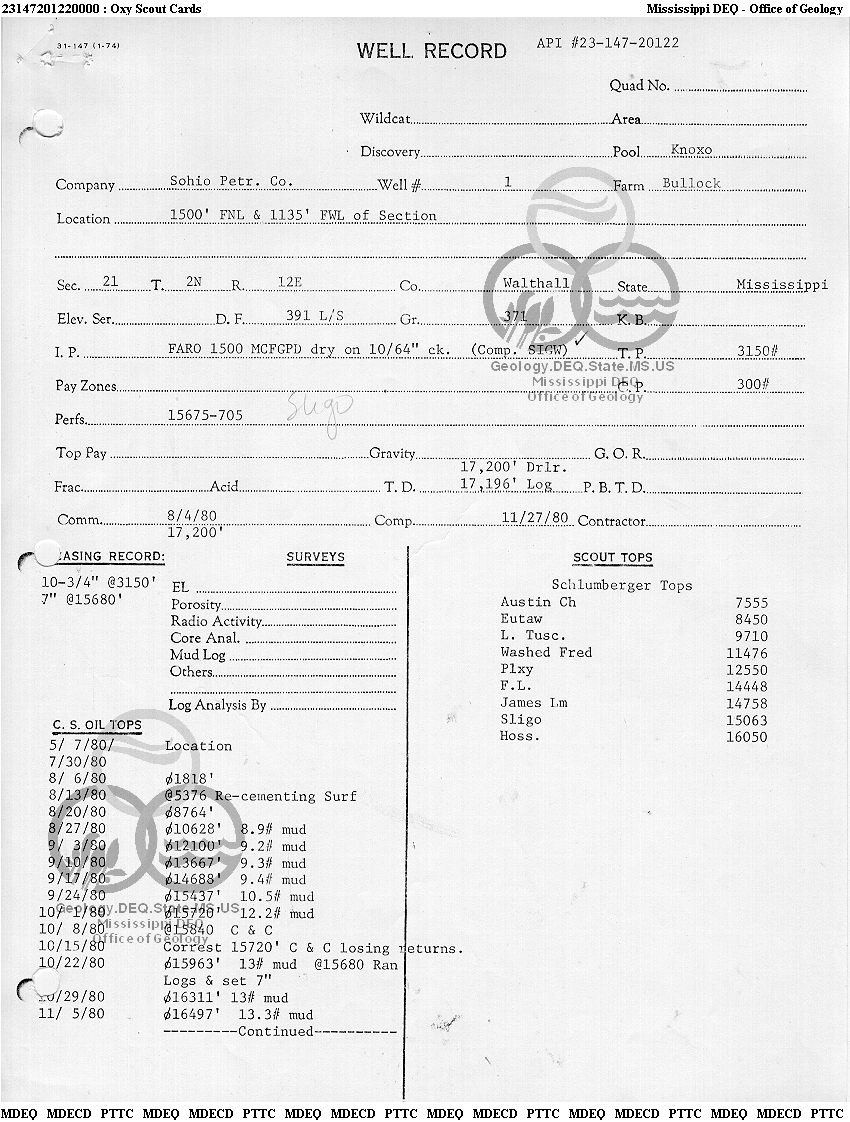 23147201220000 : Oxy Scout Cards Mississippi DEQ - Office of Geology
31-147 (1-74)
WELL RECORD API #23-147-20122
Quad No.
Wildcat Area
Discovery Pool Knoxo
Company Sohio Petr. Co. Well # 1 Farm Bullock
Location 1500' FNL & 1135' FWL of Section
Sec. 21 T. 2N R. 12E Co. Walthall State Mississippi
Elev. Ser. D. F. 391 L/S Gr. 371 K. B.
I. P. FARO 1500 MCFGPD dry on 10/64" ck. (Comp. SIGW) ✓ T. P. 3150#
Geology.DEQ.State.MS.US
Pay Zones Mississippi DEQ C. P. 300#
Office of Geology
Sligo
Perfs. 15675-705
Top Pay Gravity G. O. R.
17,200' Drlr.
Frac. Acid T. D. 17,196' Log P. B. T. D.
Comm. 8/4/80 Comp. 11/27/80 Contractor
17,200'
CASING RECORD: SURVEYS SCOUT TOPS
10-3/4" @3150'
7" @15680'
EL
Porosity
Radio Activity
Core Anal.
Mud Log
Others
Log Analysis By
Schlumberger Tops
Austin Ch 7555
Eutaw 8450
L. Tusc. 9710
Washed Fred 11476
Plxy 12550
F.L. 14448
James Lm 14758
Sligo 15063
Hoss. 16050
C. S. OIL TOPS
5/ 7/80/ Location
7/30/80
8/ 6/80 ∅1818'
8/13/80 @5376 Re-cementing Surf
8/20/80 ∅8764'
8/27/80 ∅10628' 8.9# mud
9/ 3/80 ∅12100' 9.2# mud
9/10/80 ∅13667' 9.3# mud
9/17/80 ∅14688' 9.4# mud
9/24/80 ∅15437' 10.5# mud
10/ 1/80 ∅15720' 12.2# mud
Geology.DEQ.State.MS.US
10/ 8/80 @15840 C & C
Mississippi DEQ
Office of Geology
10/15/80 Correst 15720' C & C losing returns.
10/22/80 ∅15963' 13# mud @15680 Ran
Logs & set 7"
10/29/80 ∅16311' 13# mud
11/ 5/80 ∅16497' 13.3# mud
---------Continued----------
MDEQ MDECD PTTC MDEQ MDECD PTTC MDEQ MDECD PTTC MDEQ MDECD PTTC MDEQ MDECD PTTC MDEQ MDECD PTTC